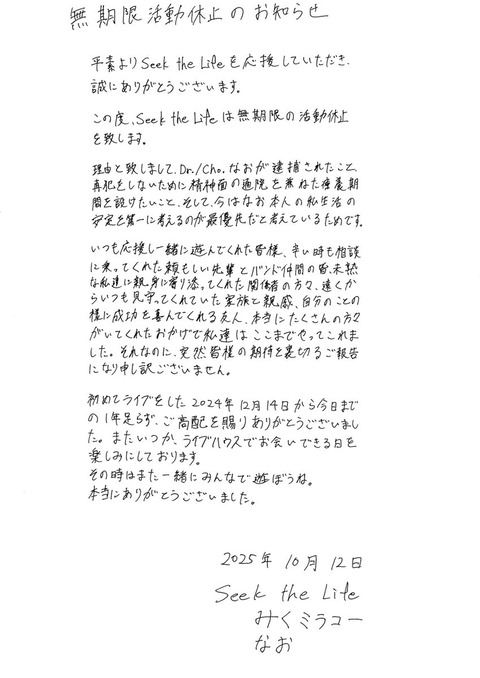 無期限活動休止のお知らせ
平素よりSeek the Lifeを応援していただき、
誠にありがとうございます。
この度、Seek the Lifeは無期限の活動休止
を致します。
理由と致しまして、Dr./Cho.なおが逮捕されたこと、
再犯をしないために精神面の通院を兼ねた療養期
間を設けたいこと、そして、今はなお本人の私生活の
安定を第一に考えるのが最優先だと考えているためです。
いつも応援し一緒に遊んでくれた皆様、辛い時も相談
に乗ってくれた頼もしい先輩とバンド仲間の皆、未熟
な私達に親身に寄り添ってくれた関係者の方々、遠くか
らいつも見守ってくれていた家族と親戚、自分のことの
様に成功を喜んでくれる友人、本当にたくさんの方々
がいてくれたおかげで私達はここまでやってこれま
した。それなのに、突然皆様の期待を裏切るご報告
になり申し訳ございません。
初めてライブをした2024年12月14日から今日まで
の1年足らず、ご高配を賜りありがとうございまし
た。またいつか、ライブハウスでお会いできる日を
楽しみにしております。
その時はまた一緒にみんなで遊ぼうね。
本当にありがとうございました。
2025年 10月 12日
Seek the Life
みくミラコー
なお